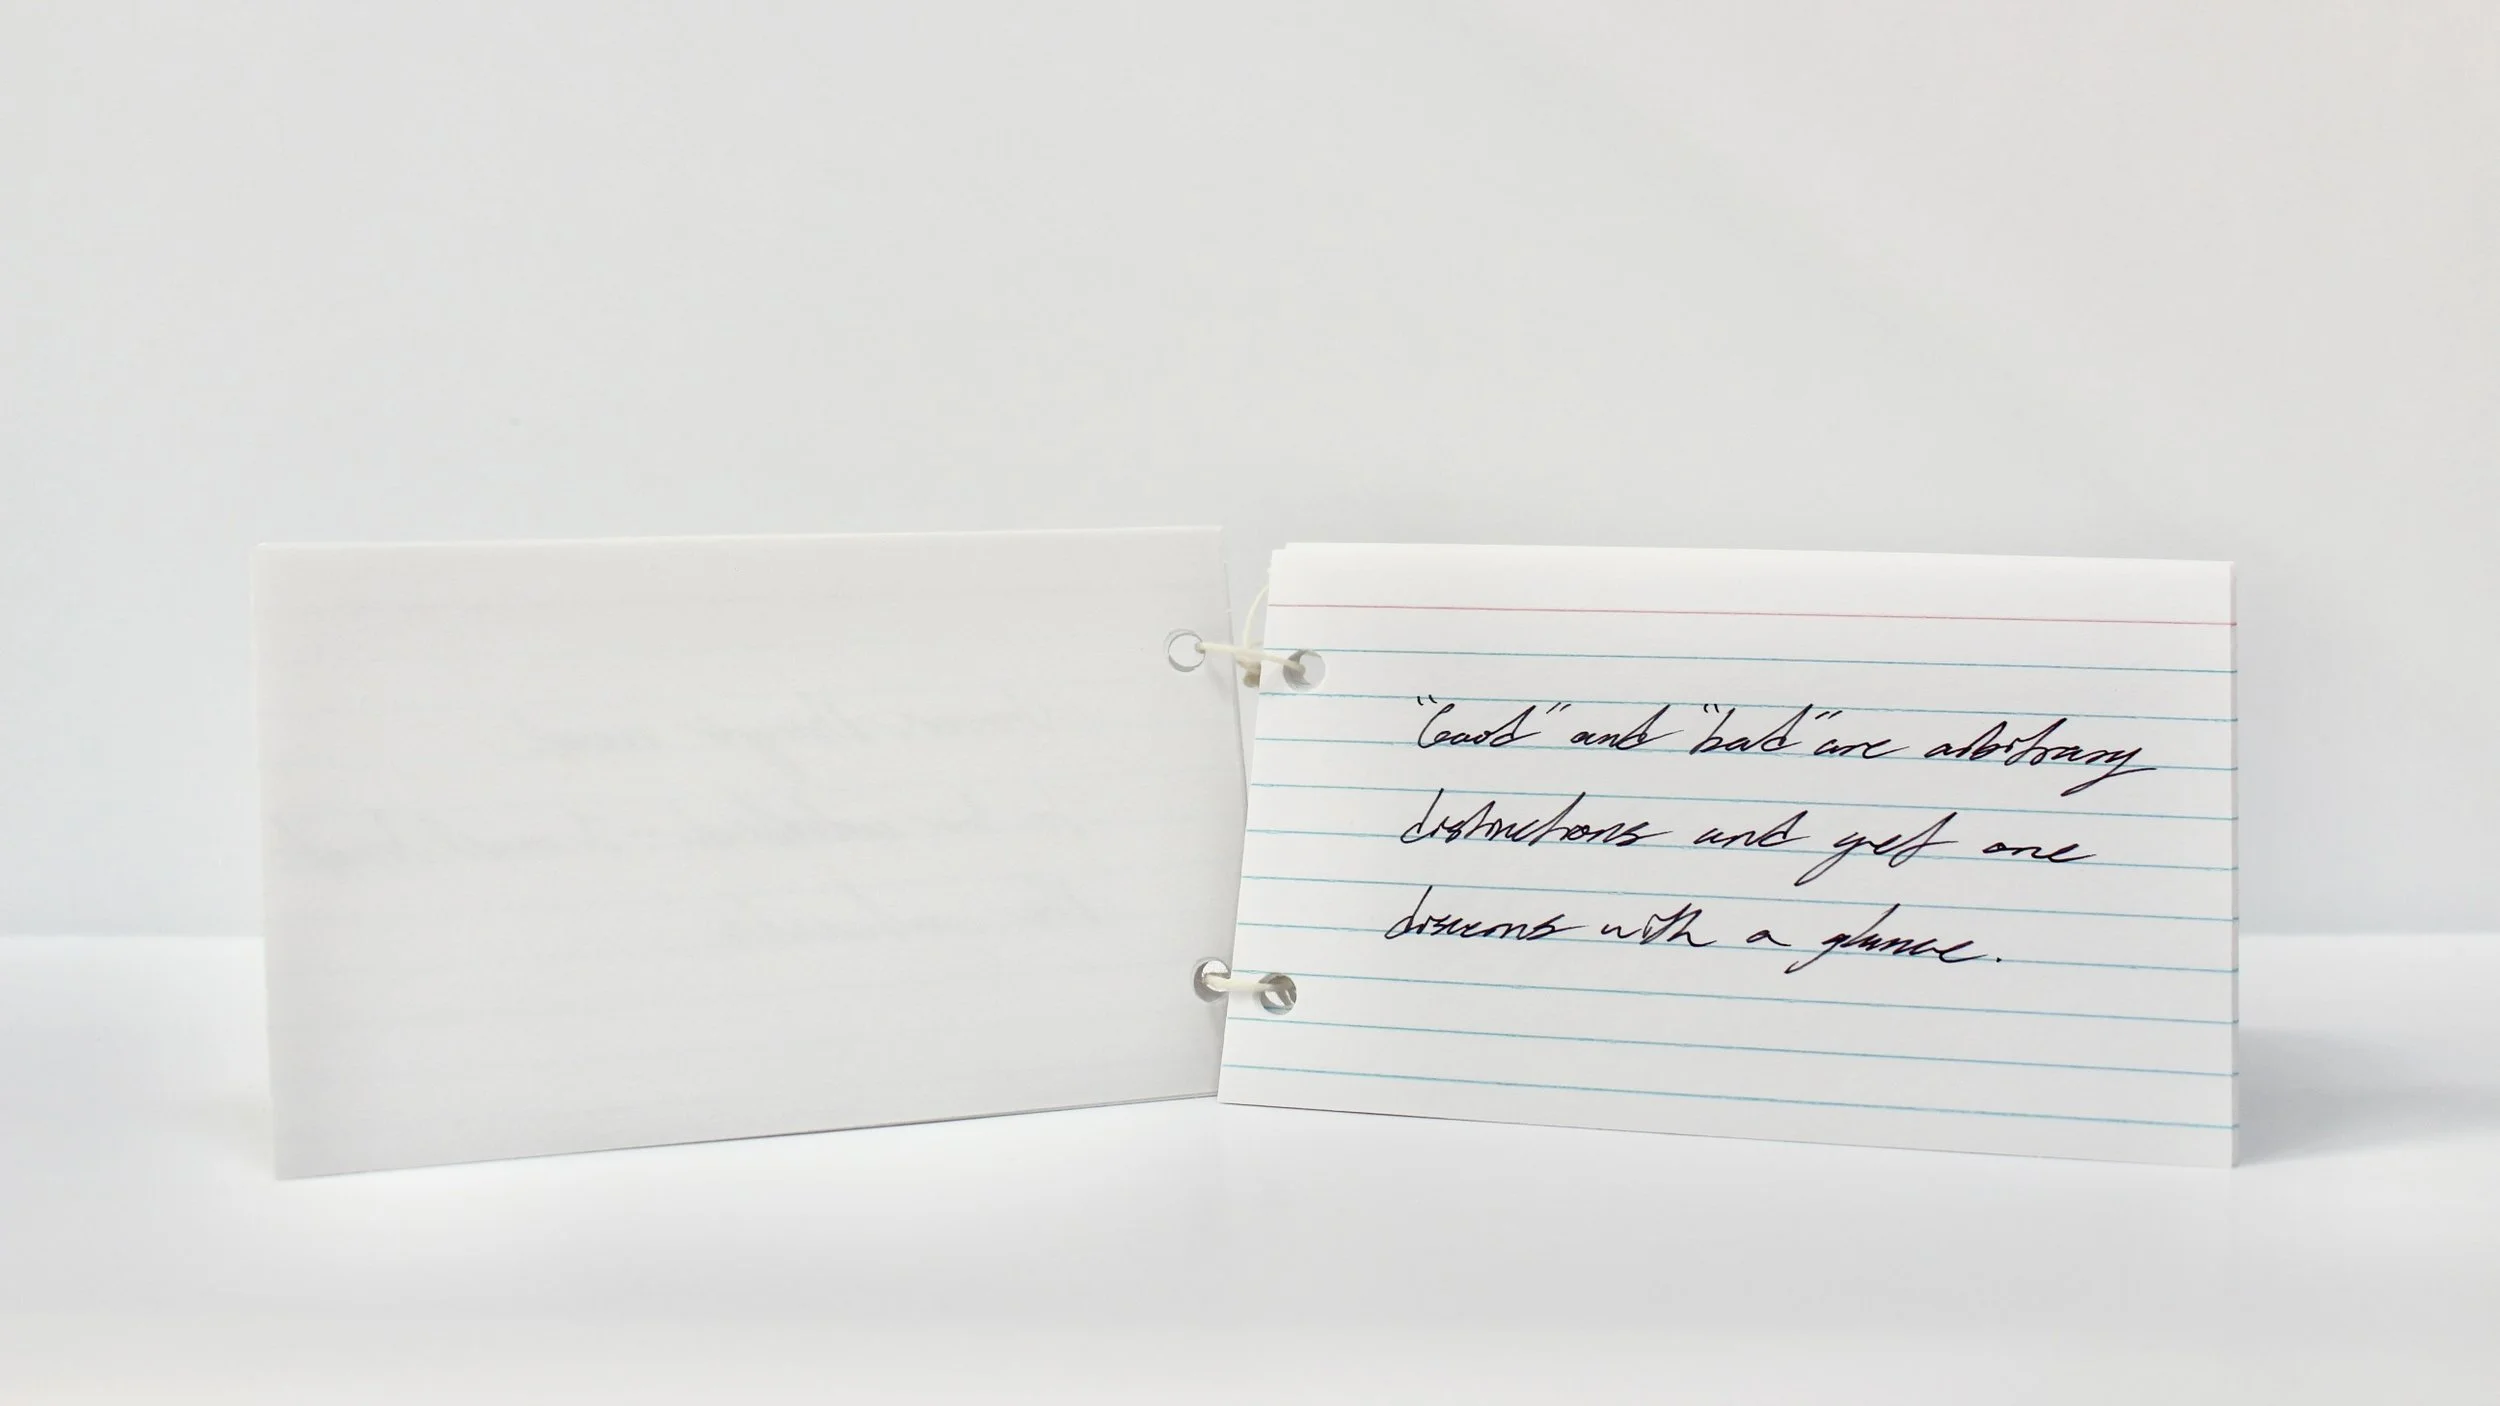 "Good" and "bad" are arbitrary
distinctions and yet one
discerns with a glance.